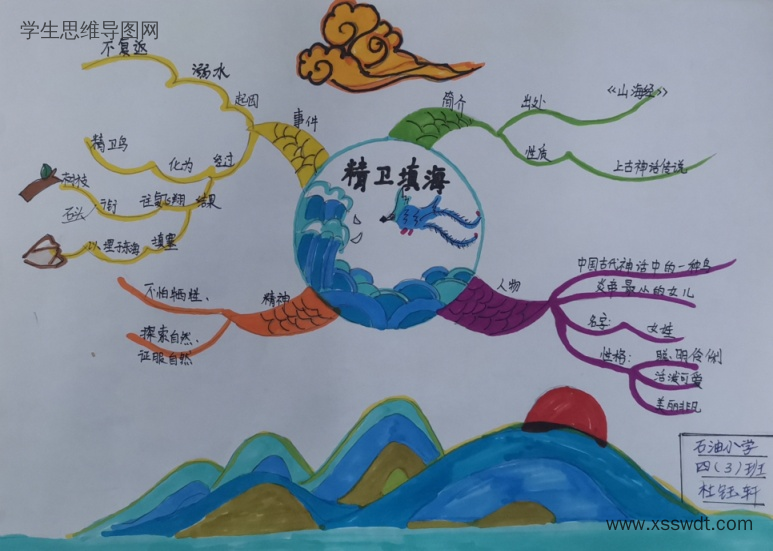 学生思维导图网
不复返
溺水
起因
事件
精卫鸟
化为
经过
树枝
石头
衔
往复飞翔
结果
填塞
精卫填海
简介
出处
《山海经》
性质
上古神话传说
不怕牺牲、
精神
探索自然、
征服自然
人物
中国古代神话中的一种鸟
炎帝最小的女儿
名字:
女娃
性格:
聪明伶俐
活泼可爱
美丽非凡
石油小学
四(3)班
杜钰轩
www.xsswdt.com